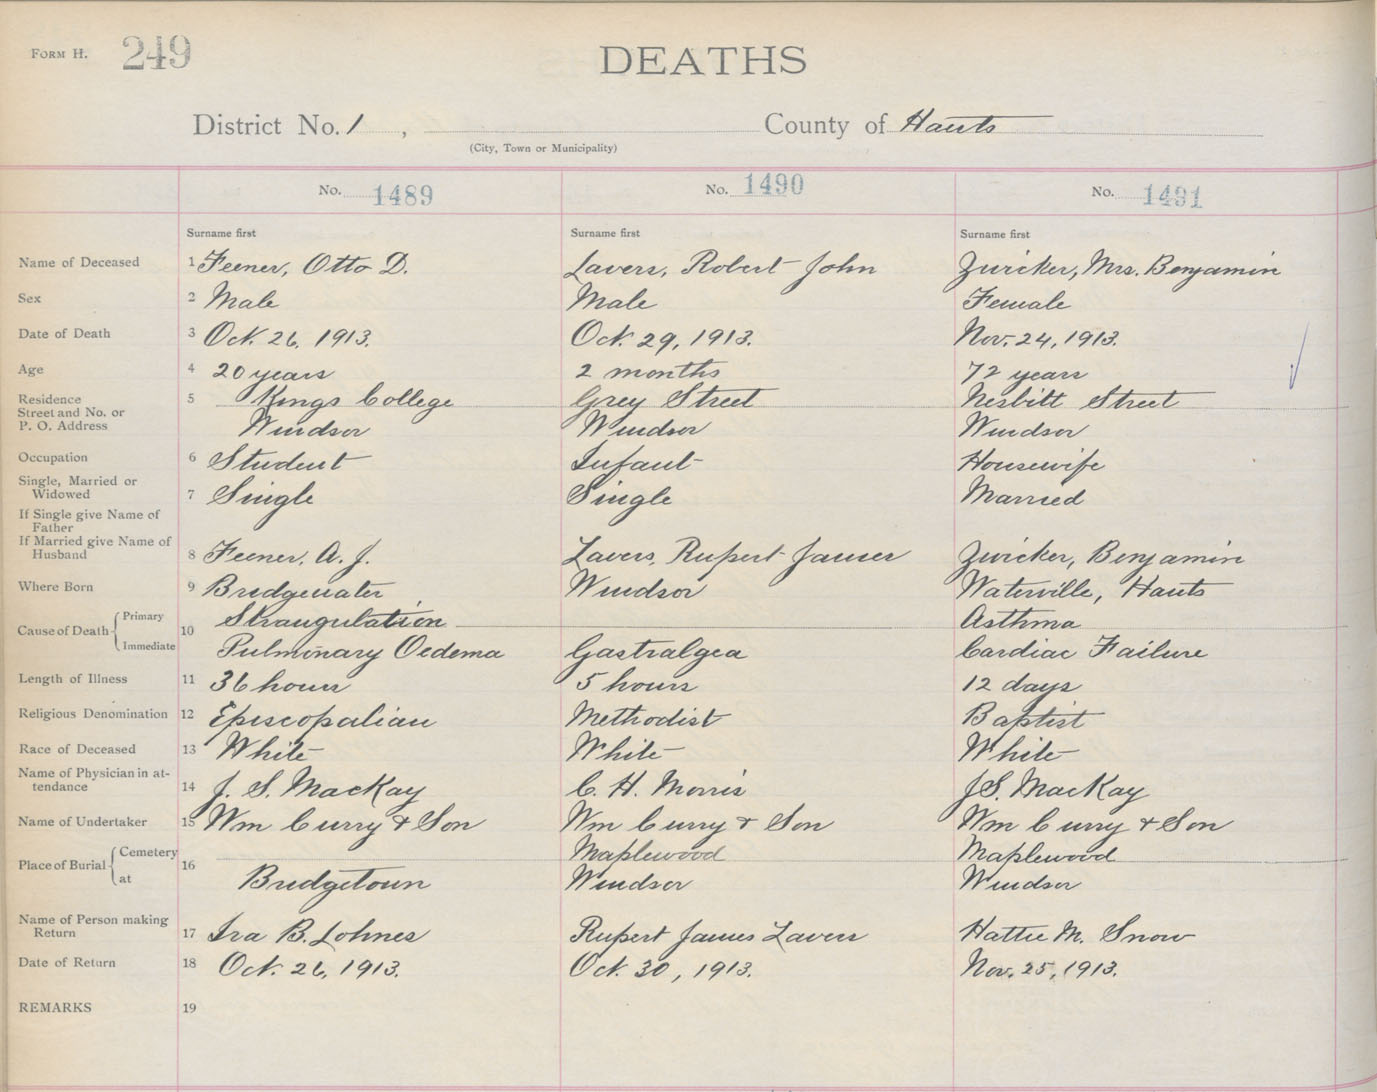 FORM H. 249
DEATHS
District No. 1 , County of Hants
(City, Town or Municipality)
No. 1489 No. 1490 No. 1491
Surname first Surname first Surname first
Name of Deceased 1 Feener, Otto D. Lavers, Robert John Zwicker, Mrs. Benjamin
Sex 2 Male Male Female
Date of Death 3 Oct. 26, 1913. Oct. 29, 1913. Nov. 24, 1913.
Age 4 20 years 2 months 72 years
Residence 5 Kings College Grey Street Nesbitt Street
Street and No. or
P. O. Address Windsor Windsor Windsor
Occupation 6 Student Infant Housewife
Single, Married or
Widowed 7 Single Single Married
If Single give Name of
Father
If Married give Name of
Husband 8 Feener, A. J. Lavers, Rupert James Zwicker, Benjamin
Where Born 9 Bridgewater Windsor Waterville, Hants
Primary Strangulation Asthma
Cause of Death 10
Immediate Pulmonary Oedema Gastralgea Cardiac Failure
Length of Illness 11 36 hours 5 hours 12 days
Religious Denomination 12 Episcopalian Methodist Baptist
Race of Deceased 13 White White White
Name of Physician in at-
tendance 14 J. S. MacKay C. H. Morris J.S. MacKay
Name of Undertaker 15 Wm Curry & Son Wm Curry & Son Wm Curry & Son
Cemetery Maplewood Maplewood
Place of Burial 16
at Bridgetown Windsor Windsor
Name of Person making
Return 17 Ira B. Lohnes Rupert James Lavers Hattie M. Snow
Date of Return 18 Oct. 26, 1913. Oct. 30, 1913. Nov. 25, 1913.
REMARKS 19